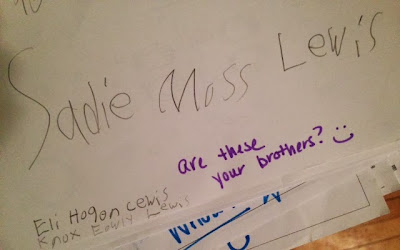 Sadie Moss Lewis
are these
your brothers? :)
Eli Hogon Lewis
Knox Lewis